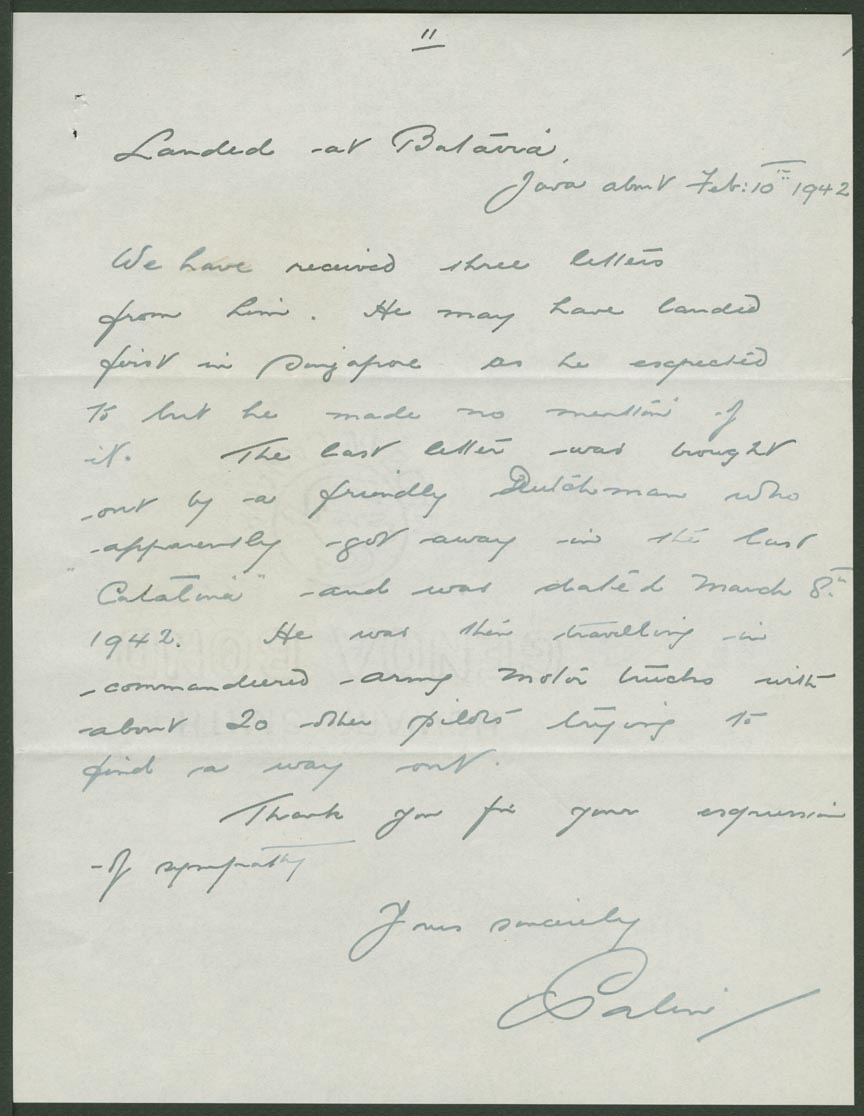 11
Landed at Batavia,
Java about Feb: 10th 1942
We have received three letters
from him. He may have landed
first in Singapore as he expected
to but he made no mention of
it. The last letter was brought
out by a friendly Dutchman who
apparently got away in the last
"Catalina" and was dated March 8th
1942. He was then travelling in
commandeered army motor trucks with
about 20 other pilots trying to
find a way out.
Thank you for your expression
of sympathy
Yours sincerely